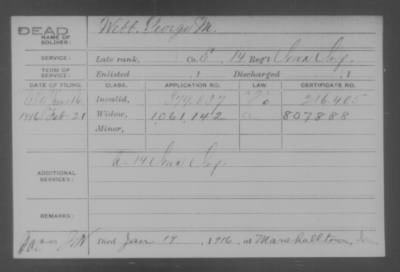 DEAD
NAME OF SOLDIER: Webb, George M.
SERVICE: Late rank, Co. E, 14 Reg't Inf
TERM OF SERVICE: Enlisted , 1 Discharged , 1
DATE OF FILING. CLASS. APPLICATION NO. LAW. CERTIFICATE NO.
Invalid, 374.037 216.405
1916 Feb-21 Widow, 1061,142 807888
Minor,
ADDITIONAL SERVICES: 14
REMARKS:
Died Jan 19, 1916, at Marshalltown,